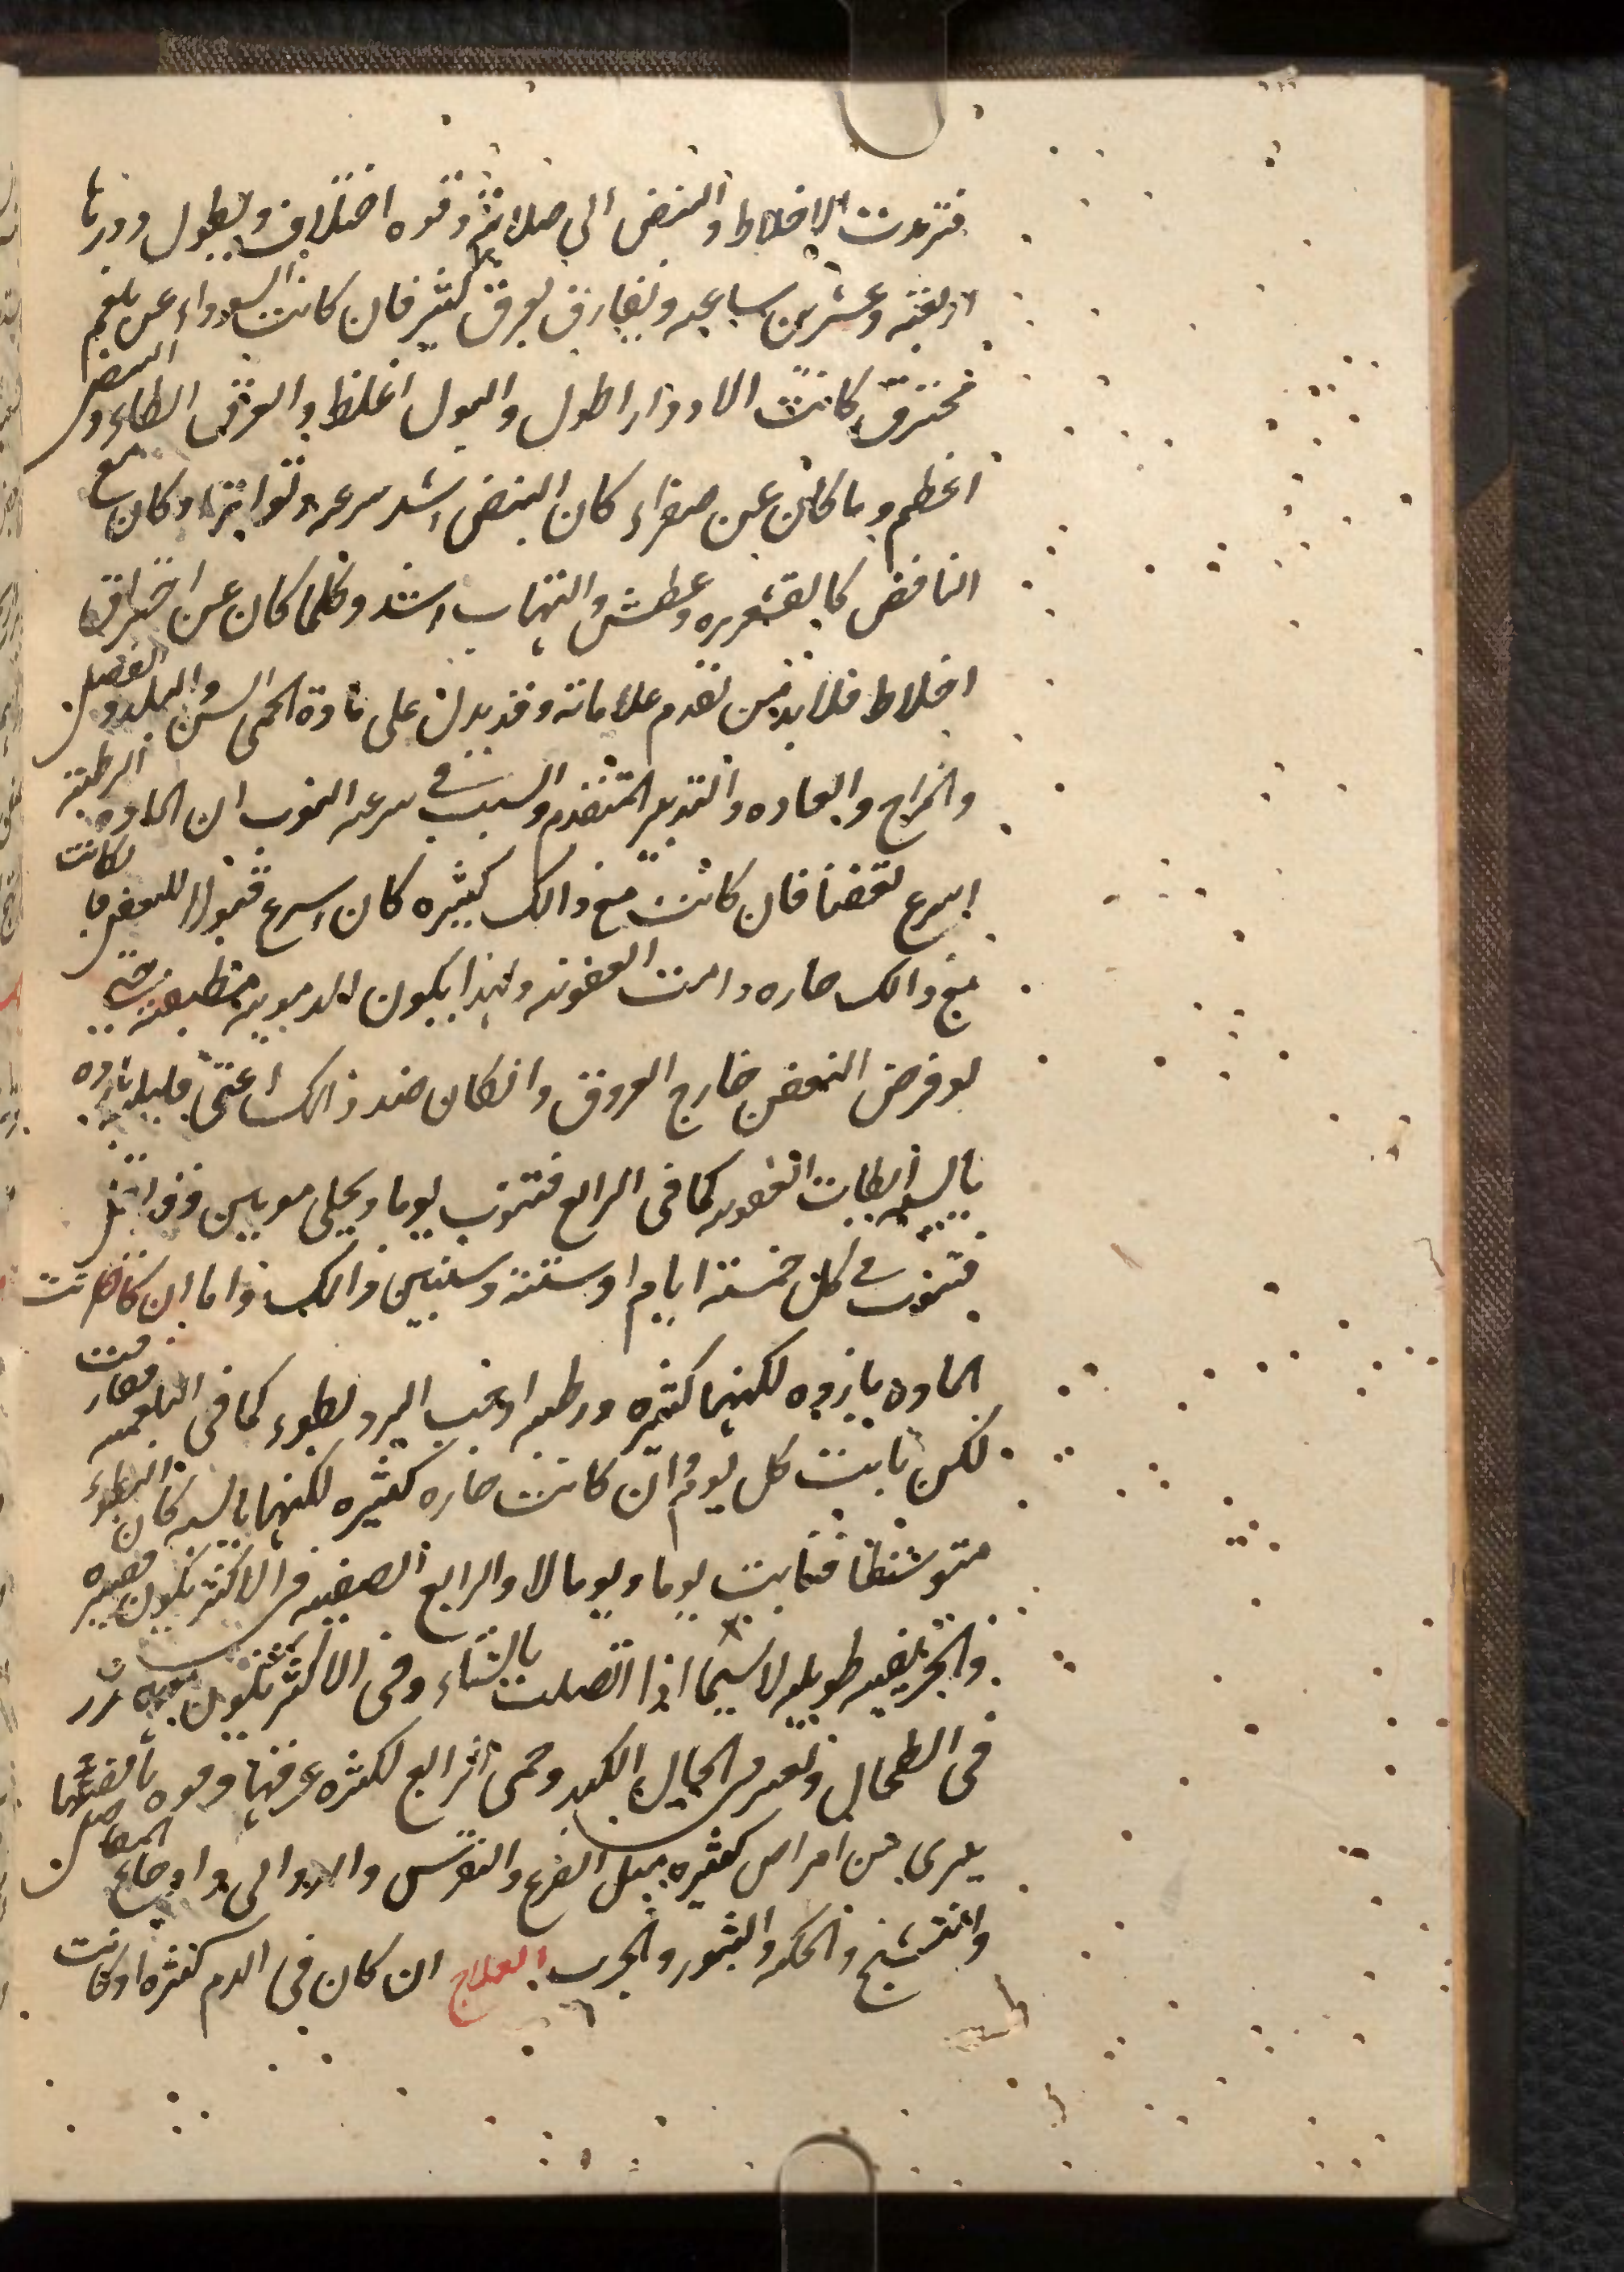 فترمدت الاخلاط والنبض الى صلابة وقوه اختلاف ويطول دورها
اربعة وعشرين ساعه ويفارق بعرق كثير فان كانت السوداء عن بلغم
محترق كانت الادوار اطول والبول اغلظ والعرق ابطاء والنبض
اعظم وما كان عن صفراء كان النبض اشد سرعه وتواترا وكان مع
النافض كالقشعريره وعطش والتهاب اشد وكلما كان عن احتراق
اخلاط فلا بد من تقدم علاماته وقد يدل على مادة الحمى السن والبلد والفصل
والمزاج والعاده والتدبير المتقدم والسبب في سرعه النوب ان الماده الرطبة
اسرع تعفنا فان كانت مع ذالك كثيره كان اسرع قبولا للتعفن فا لكانت
مع ذالك حاره دامت العفونه ولهذا يكون الدمويه مطبقة حتى
لو فرض التعفن خارج العروق وانكان ضد ذالك اعنى قليله بارده
يابسه ابطات العفونه كما في الرابع فتنوب يوما ويخلى مويين وقد اقل
فتنوب في كل خمسة ايام او ستة وسنين ذالك واما ان كانت
الماده بارده لكنها كثيره ورطبه اوجب البرد بطوء كما في البلغميه فصارت
لكن نابت كل يوم وان كانت حاره كثيره لكنها يابسه كان البطوء
متوسطا فنابت يوما ويوما لا والرابع الصيفيه في الاكثر تكون قصيره
والخريفيه طويله لاسيما اذا اتصلت بالشتاء وفي الاكثر تكون
في الطحال وحمى الرابع لكثره عرقها وقوه نافضها
يبرى من امراض كثيره مثل الصرع والنقرس والدوالى واوجاع المفاصل
والتشنج والحكه والبثور والجرب العلاج ان كان في الدم كثره اوكانت